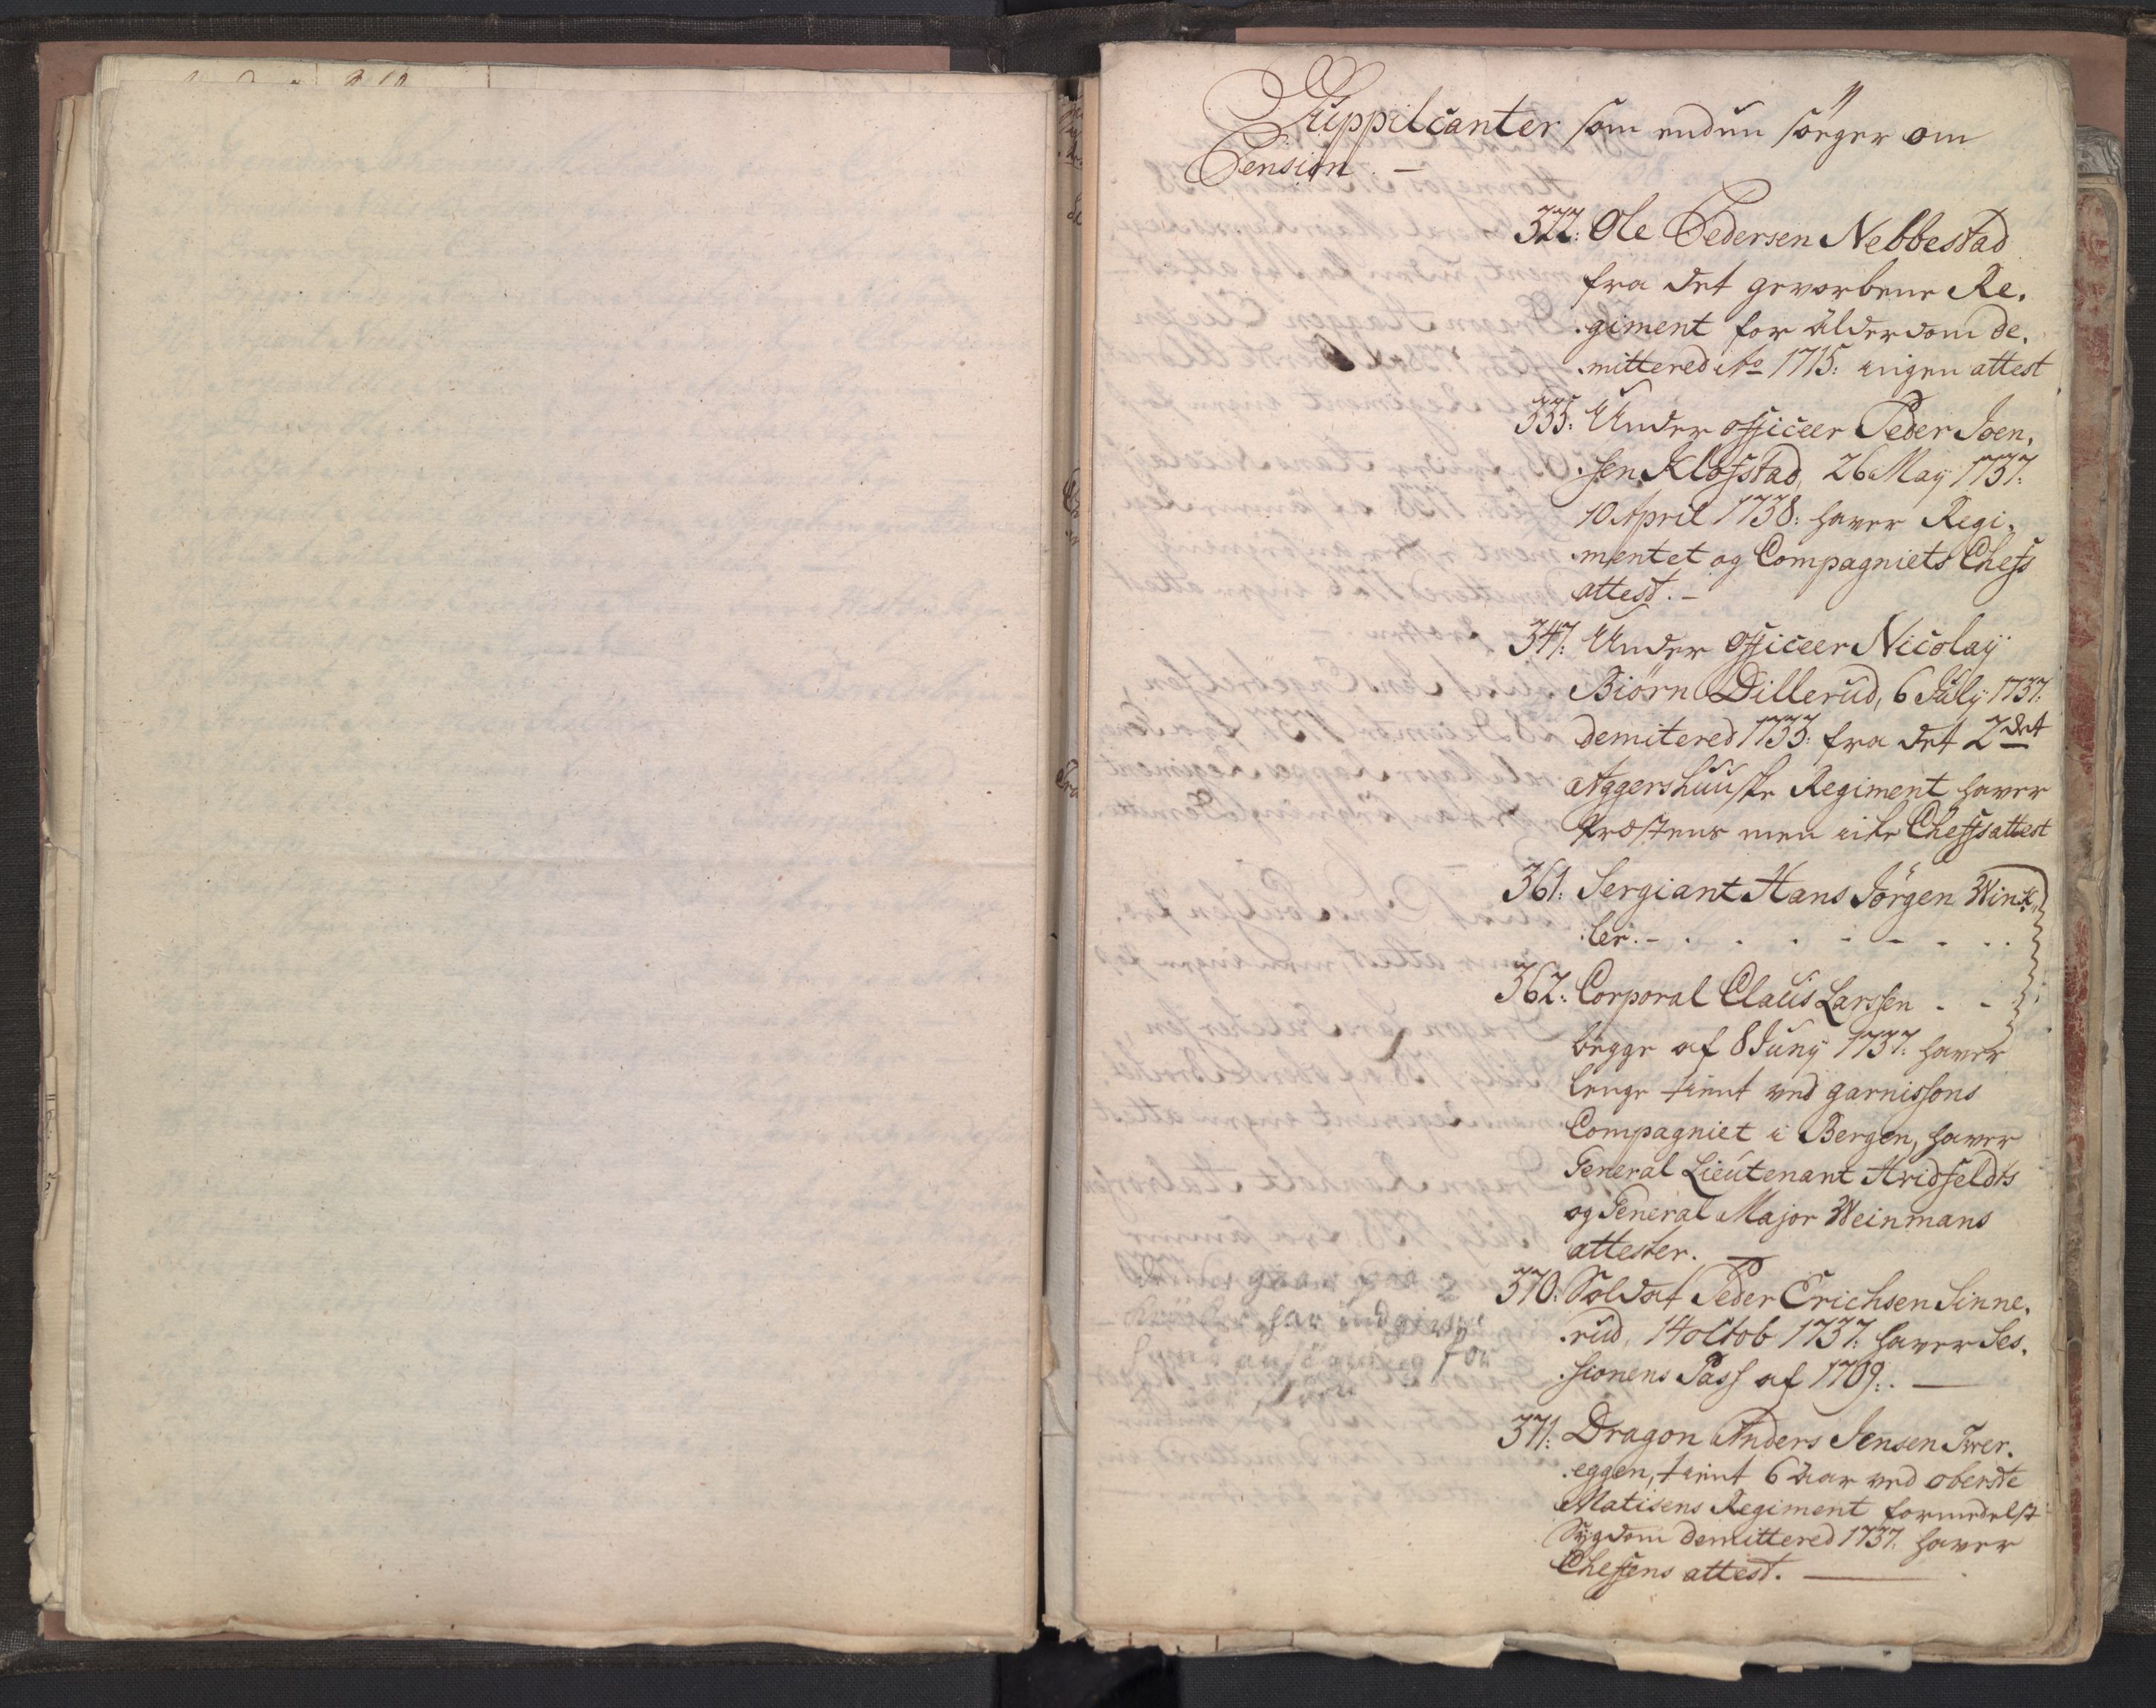 Suppilcanter som endnu söeger om
Pension. —
322: Ole Pedersen Nebbestad
fra det gevorbene Re,
,giment for älderdom de,
,mittered Ao 1715: ingen attest
335: Under officeer Peder Joen,
,sen Klofstad, 26 May 1737:
10 April 1738: haver Regi,
,mentet og Compagniets Chefs
attest. —
347: Under officeer Nicolaÿ
Biörn Dillerud, 6 Julÿ 1737:
demitered 1733: fra det 2det
Aggershuuske Regiment haver
Præstens men icke Chefs attest
361: Sergiant Hans Jörgen Wink,
,ler. - . . . - - . . .
362: Corporal Claus Larssen - -
begge af 8 Junÿ 1737: haver
lenge tient ved garnissons
Compagniet i Bergen, haver
General Lieutenant Hvidfeldts
og General Major Weinmans
attester. —
370: Soldat Peder Erichsen Sinne,
,rud, 14 octob 1737: haver Ses,
,sionens Pass af 1709: . —
371: Dragon Anders Jensen Tver,
,eggen, tient 6 aar ved oberste
Matisens Regiment formedelst
Sygdom demittered 1737: haver
Chefens attest. —